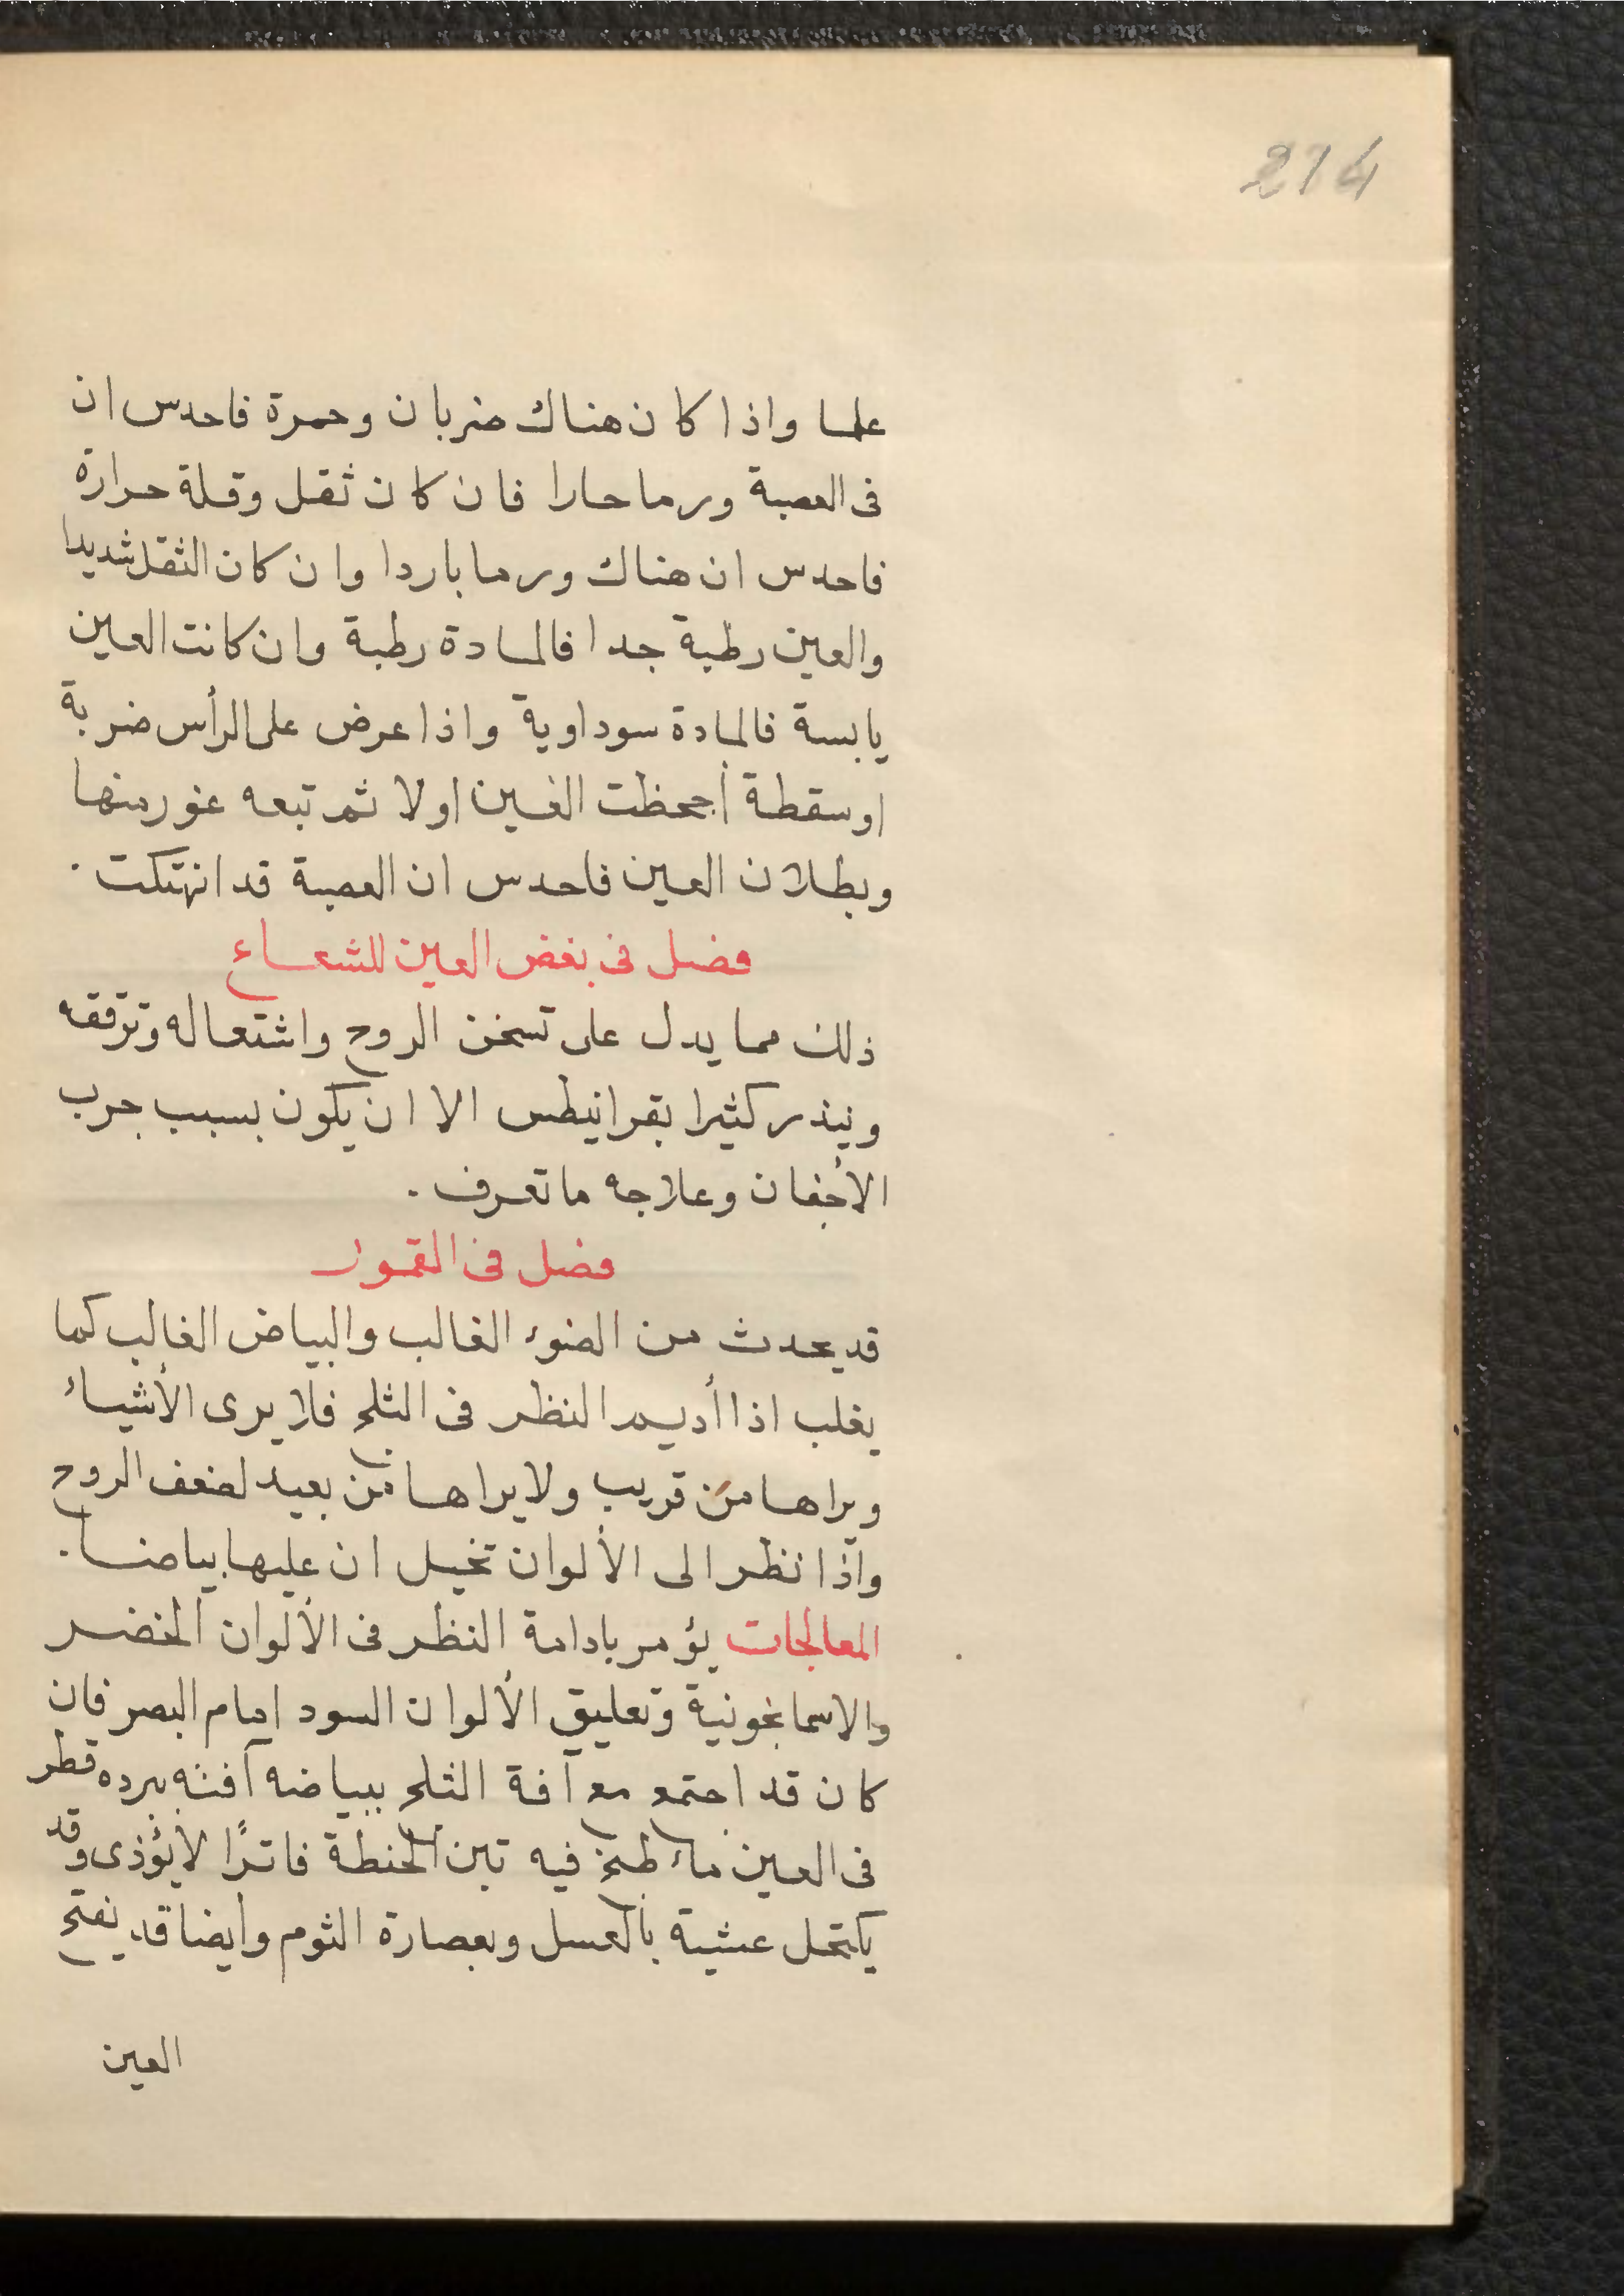 214
علما واذا كان هناك ضربان وحمرة فاحدس ان
فى العصبة ورما حارا فان كان ثقل وقلة حرارة
فاحدس ان هناك ورما باردا وان كان الثقل شديدا
والعين رطبة جدا فالمادة رطبة وان كانت العين
يابسة فالمادة سوداوية واذا عرض على الرأس ضربة
اوسقطة أجحظت الغين اولا ثم تبعه غور منها
وبطلان العين فاحدس ان العصبة قد انهتكت .
فصل فى بغض العين للشعاع
ذلك مما يدل على تسخن الروح واشتعاله وترققه
وينذر كثيرا بقرانيطس الا ان يكون بسبب جرب
الأجفان وعلاجه ما تعرف .
فصل فى القمور
قد يحدث من الضوء الغالب والبياض الغالب كما
يغلب اذا أديم النظر فى الثلج فلا يرى الأشياء
ويراها من قريب ولا يراها من بعيد لضعف الروح
واذا نظر الى الألوان تخيل ان عليها بياضا .
المعالجات يؤمر بادامة النظر فى الألوان الخضر
والاسمانجونية وتعليق الألوان السود امام البصر فان
كان قد اجتمع مع آفة الثلج ببياضه آفته ببرده قطر
فى العين ماء طبخ فيه تبن الحنطة فاترًا لا يؤذى وقد
يكتحل عشية بالعسل وبعصارة الثوم وأيضا قد يفتح
العين